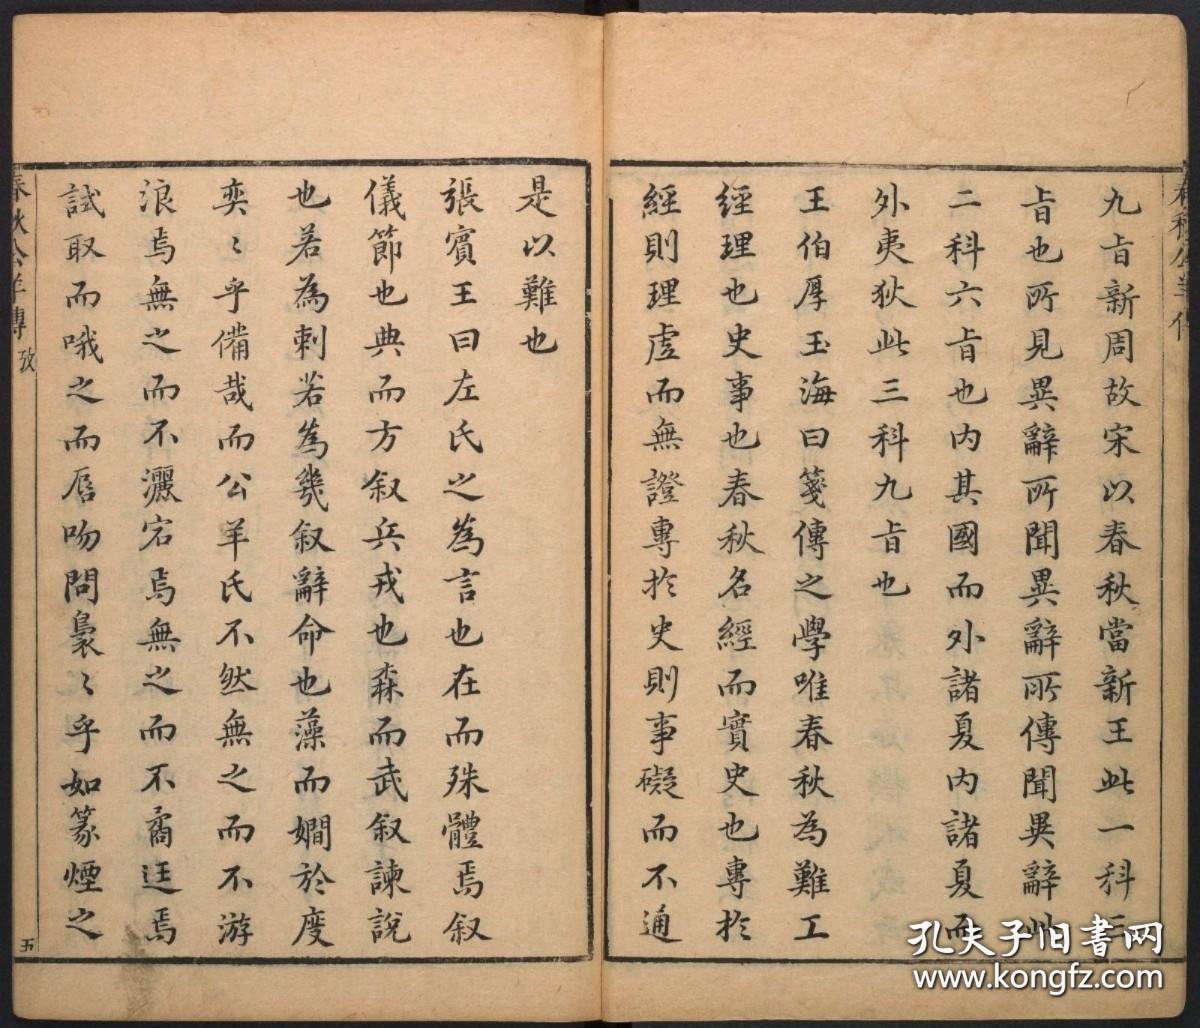 九㫖新周故宋以春秋當新王此一科三
㫖也所見異辭所聞異辭所傳聞異辭此
二科六㫖也内其國而外諸夏内諸夏而
外夷狄此三科九㫖也
王伯厚玉海曰箋傳之學唯春秋為難工
經理也史事也春秋名經而實史也專於
經則理虛而無證專於史則事礙而不通
是以難也
張賓王曰左氏之為言也在而殊體焉叙
儀節也典而方叙兵戎也森而武叙諫說
也若為刺若為幾叙辭命也藻而嫺於度
奕〻乎備哉而公羊氏不然無之而不游
浪焉無之而不灑宕焉無之而不矞迋焉
試取而哦之而唇吻間裊〻乎如篆煙之
春秋公羊傳 攷
五
孔夫子旧书网
www.kongfz.com